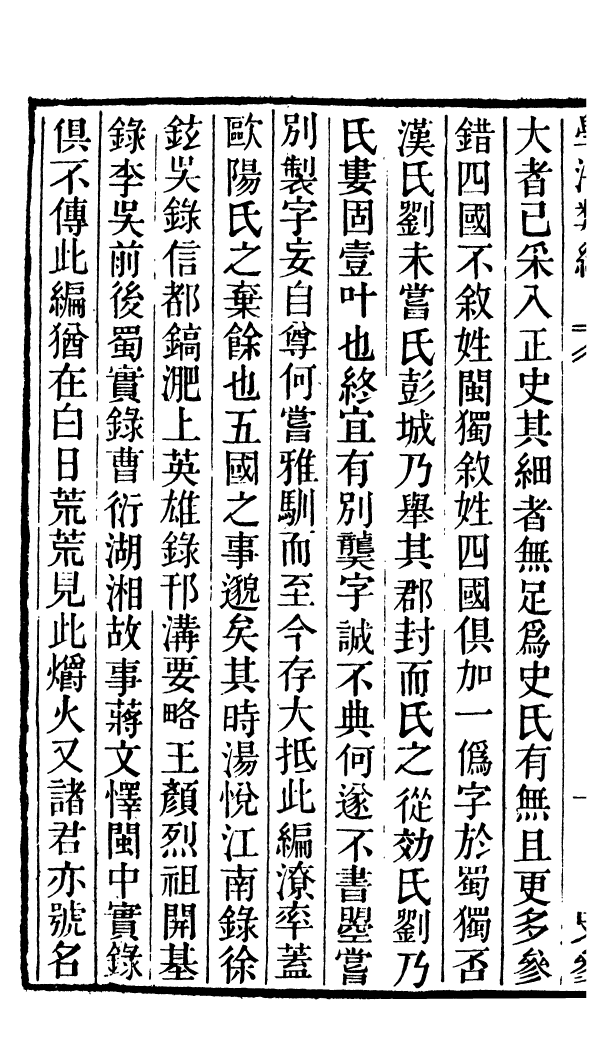 大者已采入正史其細者無足爲史氏有無且更多參
錯四國不敘姓閩獨敘姓四國俱加一僞字於蜀獨否
漢氏劉未嘗氏彭城乃舉其郡封而氏之從効氏劉乃
氏婁固壹叶也終宜有別龑字誠不典何遂不書曌嘗
別製字妄自尊何嘗雅馴而至今存大抵此編潦率蓋
歐陽氏之棄餘也五國之事邈矣其時湯悅江南錄徐
鉉吳錄信都鎬淝上英雄錄邗溝要略王顏烈祖開基
錄李吳前後蜀實錄曹衍湖湘故事蔣文懌閩中實錄
俱不傳此編猶在白日荒荒見此爝火又諸君亦號名